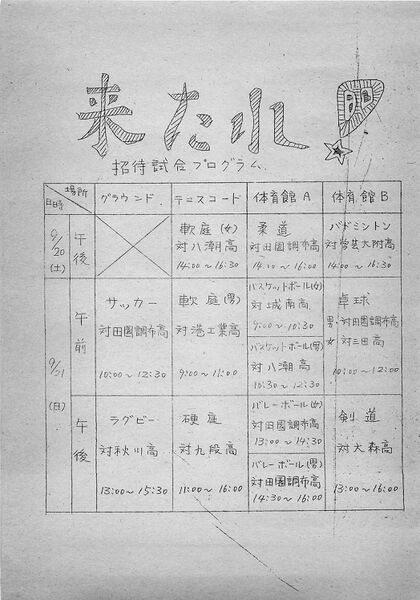 来たれ!
招待試合プログラム
場所
日時
グラウンド
テニスコート
体育館A
体育館B
9/20
(土)
午後
軟庭(女)
対八潮高
14:00~16:30
柔道
対田園調布高
14:00~16:00
バドミントン
対学芸大附高
14:00~16:30
9/21
(日)
午前
サッカー
対田園調布高
10:00~12:30
軟庭(男)
対港工業高
9:00~11:00
バスケットボール(女)
対城南高
9:00~10:30
バスケットボール(男)
対八潮高
10:30~12:30
卓球
男 対田園調布高
女 対三田高
10:00~12:00
午後
ラグビー
対秋川高
13:00~15:30
硬庭
対九段高
11:00~16:00
バレーボール(女)
対田園調布高
13:00~14:30
バレーボール(男)
対田園調布高
14:30~16:00
剣道
対大森高
13:00~16:00